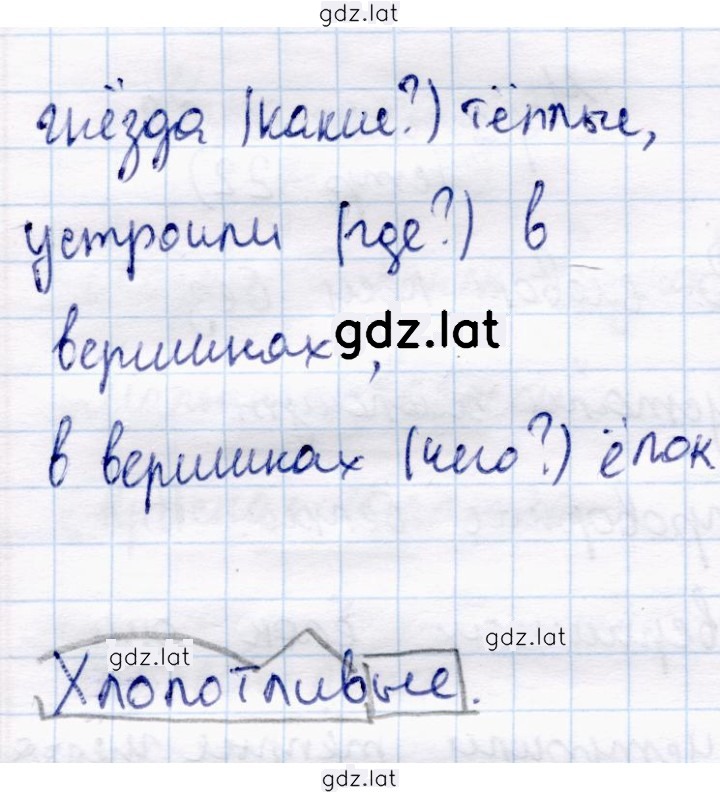 gdz.lat
гнёзда (какие?) тёплые,
устроили (где?) в
вершинах,
gdz.lat
в вершинах (чего?) ёлок
gdz.lat
gdz.lat
Хлопотливые.
gdz.lat